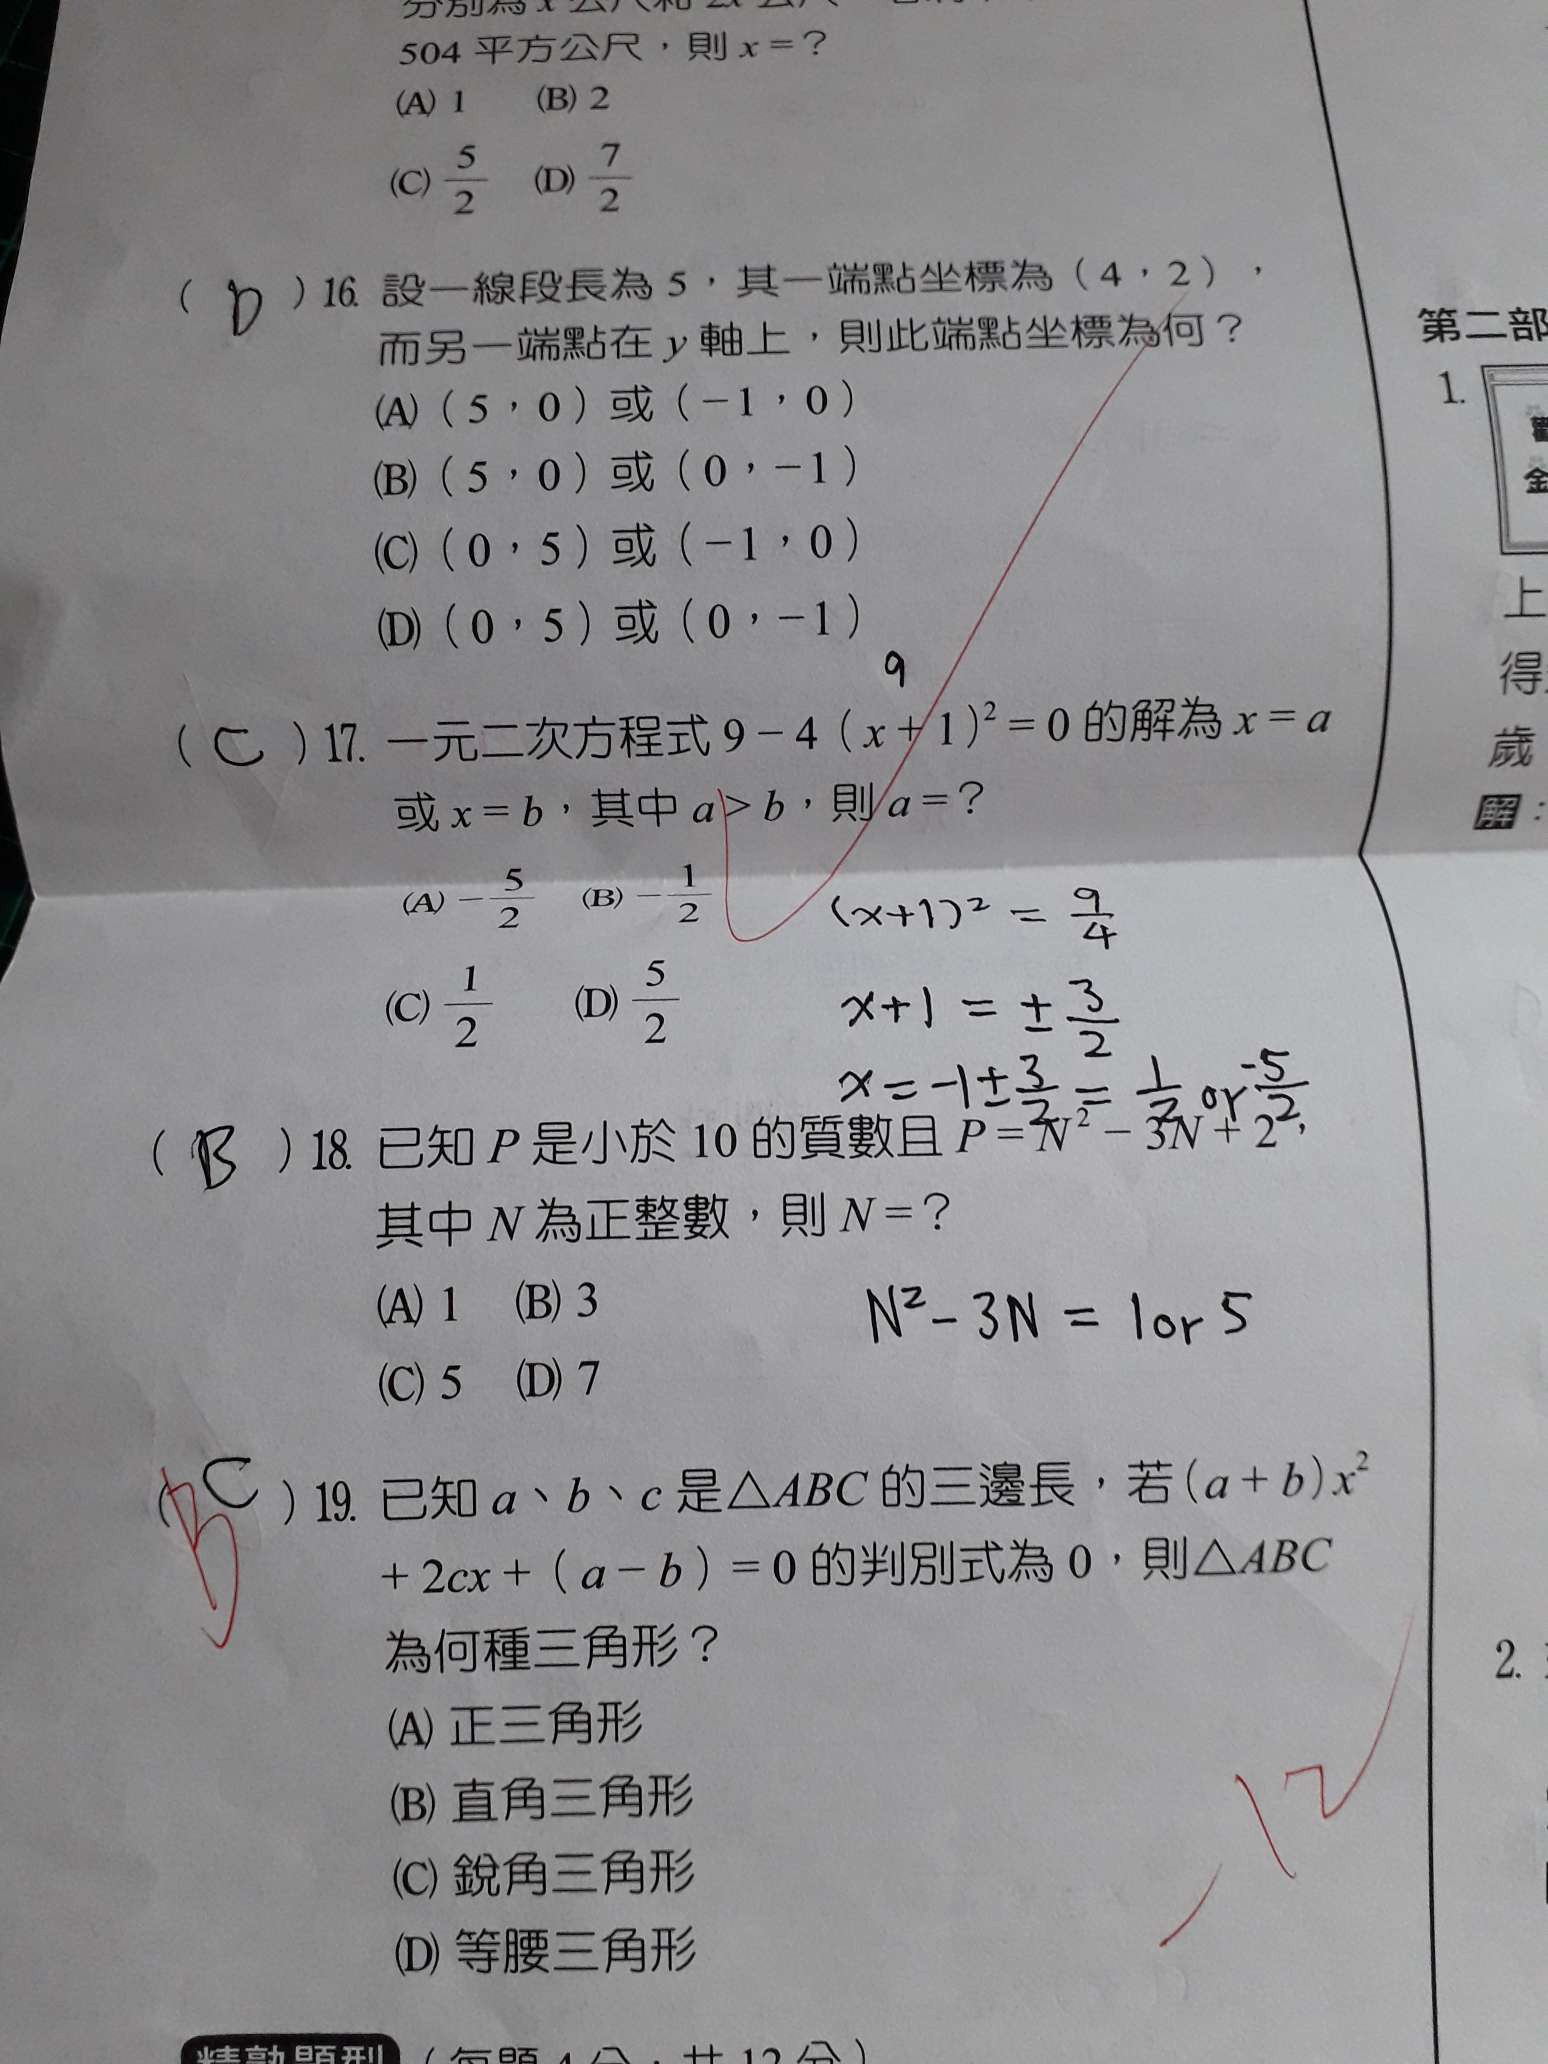 504 平方公尺，則 x = ?
(A) 1 (B) 2
(C) 5/2 (D) 7/2
( D ) 16. 設一線段長為 5，其一端點坐標為（4，2），
而另一端點在 y 軸上，則此端點坐標為何？
(A)（5，0）或（−1，0）
(B)（5，0）或（0，−1）
(C)（0，5）或（−1，0）
(D)（0，5）或（0，−1）
9
( C ) 17. 一元二次方程式 9 − 4（x + 1)² = 0 的解為 x = a
或 x = b，其中 a > b，則 a = ?
(A) −5/2 (B) −1/2
(x+1)² = 9/4
(C) 1/2 (D) 5/2
x+1 = ± 3/2
x = -1 ± 3/2 = 1/2 or -5/2
( B ) 18. 已知 P 是小於 10 的質數且 P = N² − 3N + 2，
其中 N 為正整數，則 N = ?
(A) 1 (B) 3
N² - 3N = 1 or 5
(C) 5 (D) 7
( C ) 19. 已知 a、b、c 是△ABC 的三邊長，若 (a + b)x²
B
+ 2cx +（a − b）= 0 的判別式為 0，則△ABC
為何種三角形？
(A) 正三角形
(B) 直角三角形
(C) 銳角三角形
(D) 等腰三角形
-12
精熟題型（每題 4 分，共 12 分）
第二部
1.
金
上
得
歲
解：
2.